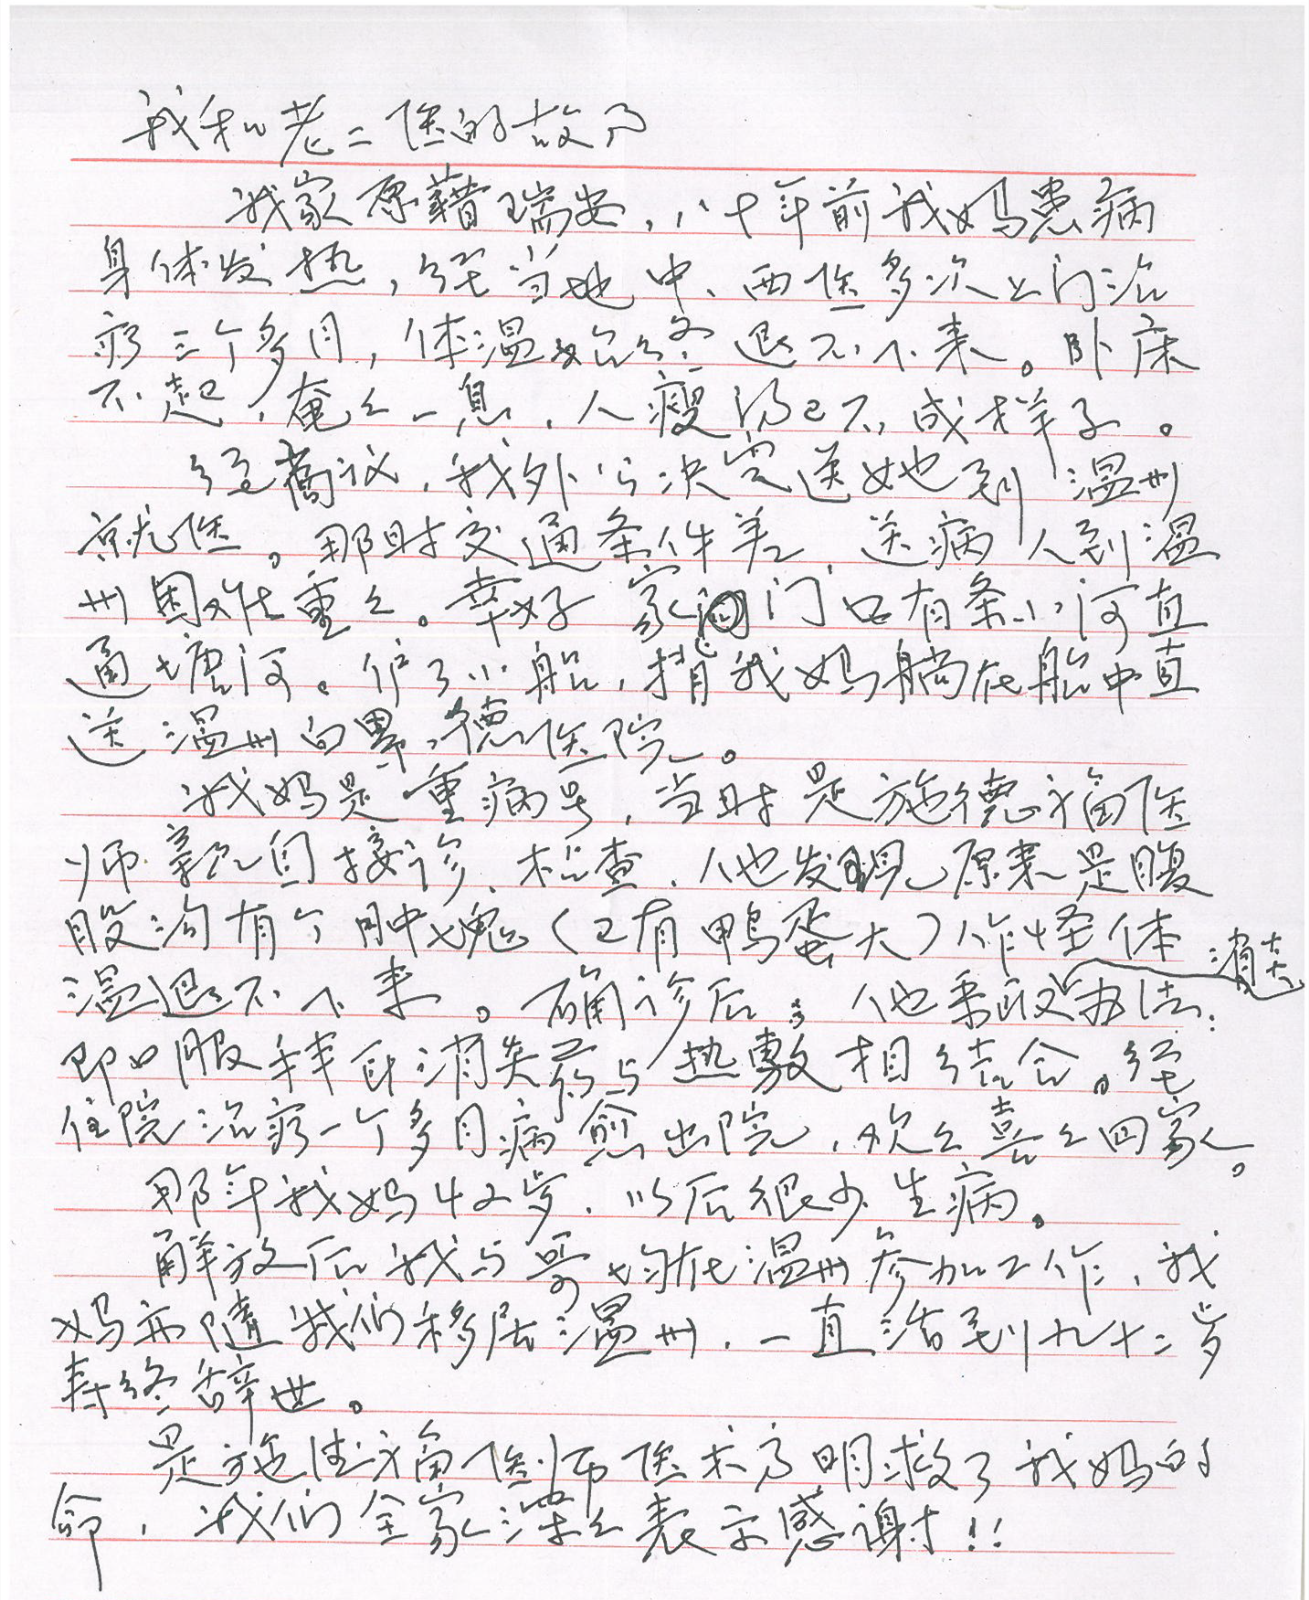 我和老二医的故事
我家原藉瑞安，八十年前我妈患病
身体发热，经当地中、西医多次上门治
疗三个多月，体温始终退不下来。卧床
不起，奄々一息，人瘦得已不成样子。
经商议，我外公决定送她到温州
就医。那时交通条件差，送病人到温
州困难重々。幸好家门口有条小河直
通塘河。伫了小船，揹我妈躺在船中直
送温州白累德医院。
我妈是重病号，当时是施德福医
师亲自接诊、检查，他发现原来是腹
股沟有个肿块（已有鸭蛋大）作怪体
温退不下来。确诊后，他采取消毒办法：
即口服 消炎药与热敷相结合。经
住院治疗一个多月病愈出院，欢々喜々回家。
那年我妈42岁，以后很少生病。
解放后我与哥均在温州参加工作，我
妈亦随我们移居温州，一直活到九十二岁
寿终辞世。
是施德福医师医术高明救了我妈的
命，我们全家深々表示感谢!!